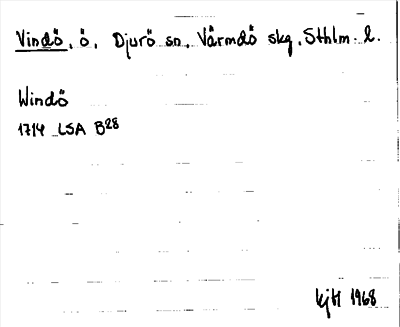 Vindö, ö, Djurö sn, Värmdö skg, Sthlm. l.
Windö
1714 LSA B28
kjH 1968